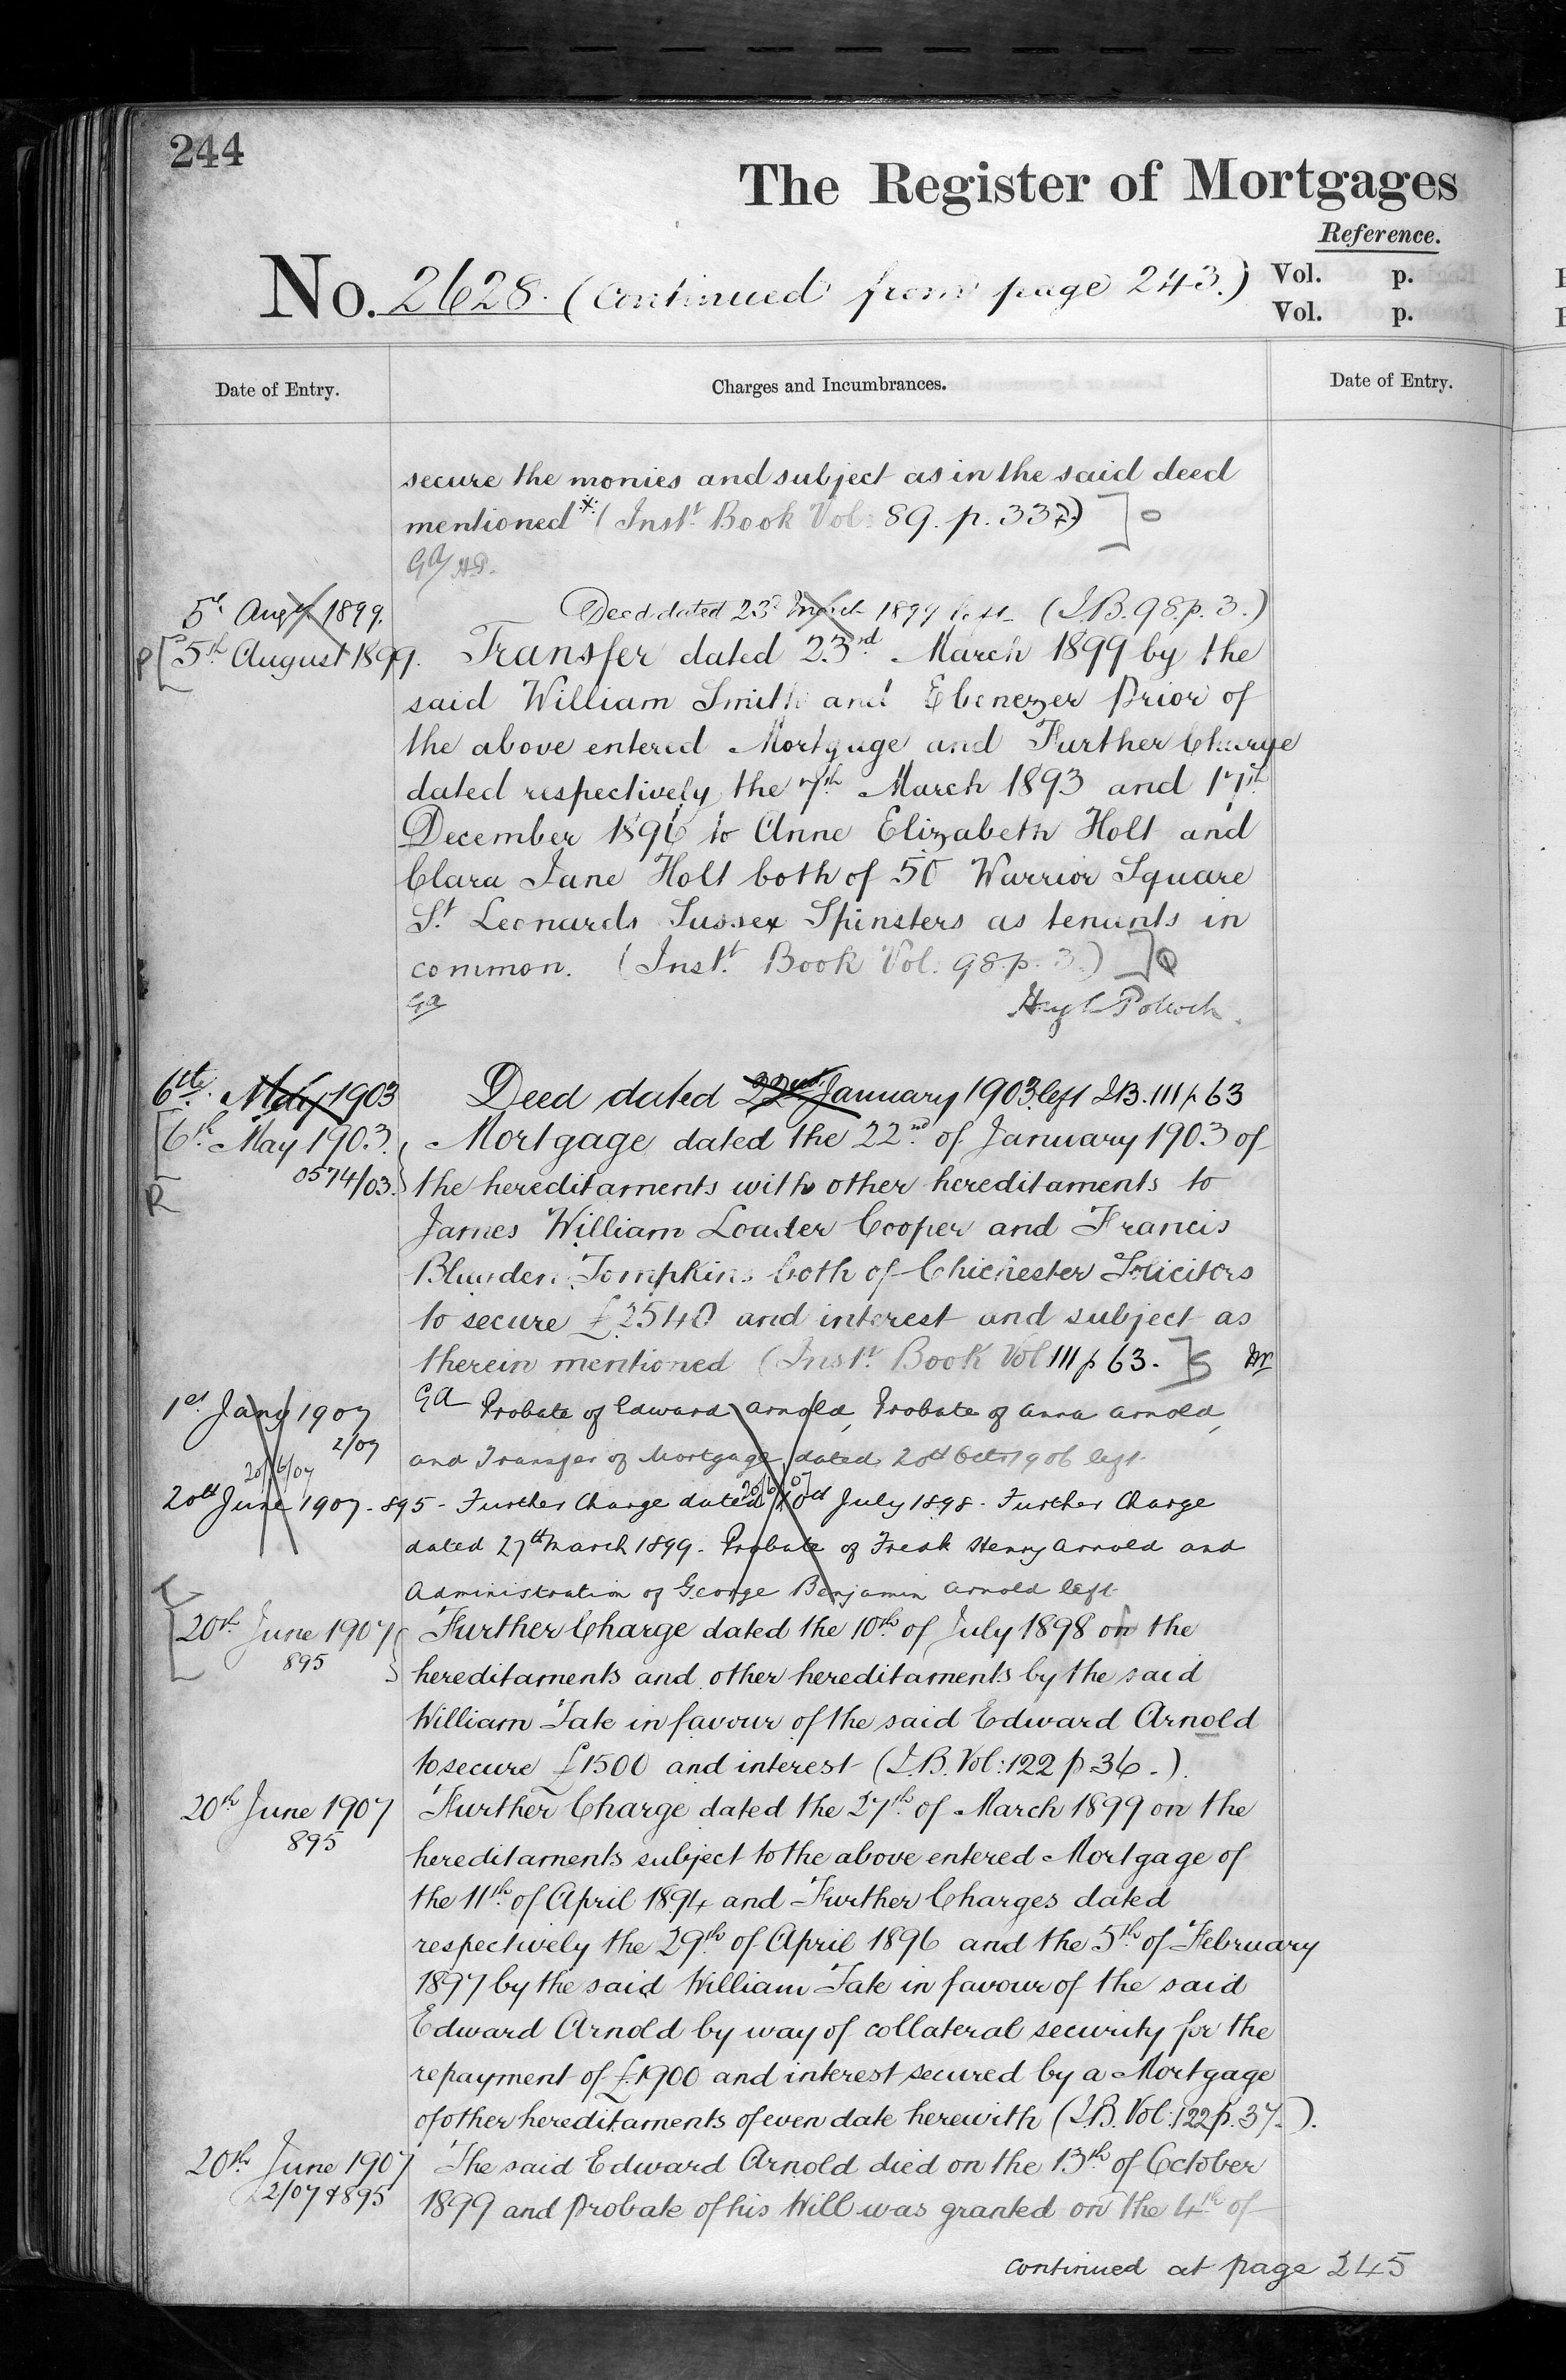 244
The Register of Mortgages
Reference.
No. 2628. (continued from page 243.)
Vol. p.
Vol. p.
Date of Entry.
Charges and Incumbrances.
Date of Entry.
secure the monies and subject as in the said deed
mentioned * (Inst.t Book Vol: 89. p. 337)
GA/HP.
5th Augt 1899. Deed dated 23d March 1899 left (I.B. 98. p. 3.)
P [5th August 1899. Transfer dated 23rd March 1899 by the
said William Smith and Ebenezer Prior of
the above entered Mortgage and Further Charge
dated respectively the 7th March 1893 and 17th
December 1896 to Anne Elizabeth Holt and
Clara Jane Holt both of 50 Warrior Square
St Leonards Sussex Spinsters as tenants in
common. (Inst.t Book Vol: 98. p. 3.)
GA
6th May 1903 Deed dated 22nd January 1903 left I.B. 111 p 63
[6th May 1903. Mortgage dated the 22nd of January 1903 of
0574/03. the hereditaments with other hereditaments to
R
James William Loader Cooper and Francis
Blunden Tompkins both of Chichester Solicitors
to secure £2540 and interest and subject as
therein mentioned (Inst.t Book Vol 111 p 63.
1st Jany 1907 GA Probate of Edward Arnold, Probate of Anna Arnold,
2/07
and Transfer of Mortgage dated 20th Octr 1906 left
20/6/07
20th June 1907. 895 - Further Charge dated 10th July 1898. Further Charge
dated 27th March 1899. Probate of Fredk Henry Arnold and
Administration of George Benjamin Arnold left
[20th June 1907 Further Charge dated the 10th of July 1898 on the
895 hereditaments and other hereditaments by the said
William Tate in favour of the said Edward Arnold
to secure £1500 and interest (I.B. Vol: 122 p 36.).
20th June 1907 Further Charge dated the 27th of March 1899 on the
895
hereditaments subject to the above entered Mortgage of
the 11th of April 1894 and Further Charges dated
respectively the 29th of April 1896 and the 5th of February
1897 by the said William Tate in favour of the said
Edward Arnold by way of collateral security for the
repayment of £1900 and interest secured by a Mortgage
of other hereditaments of even date herewith (I.B. Vol: 122 p. 37.).
20th June 1907 The said Edward Arnold died on the 13th of October
2/07 & 895 1899 and Probate of his Will was granted on the 4th of
continued at page 245